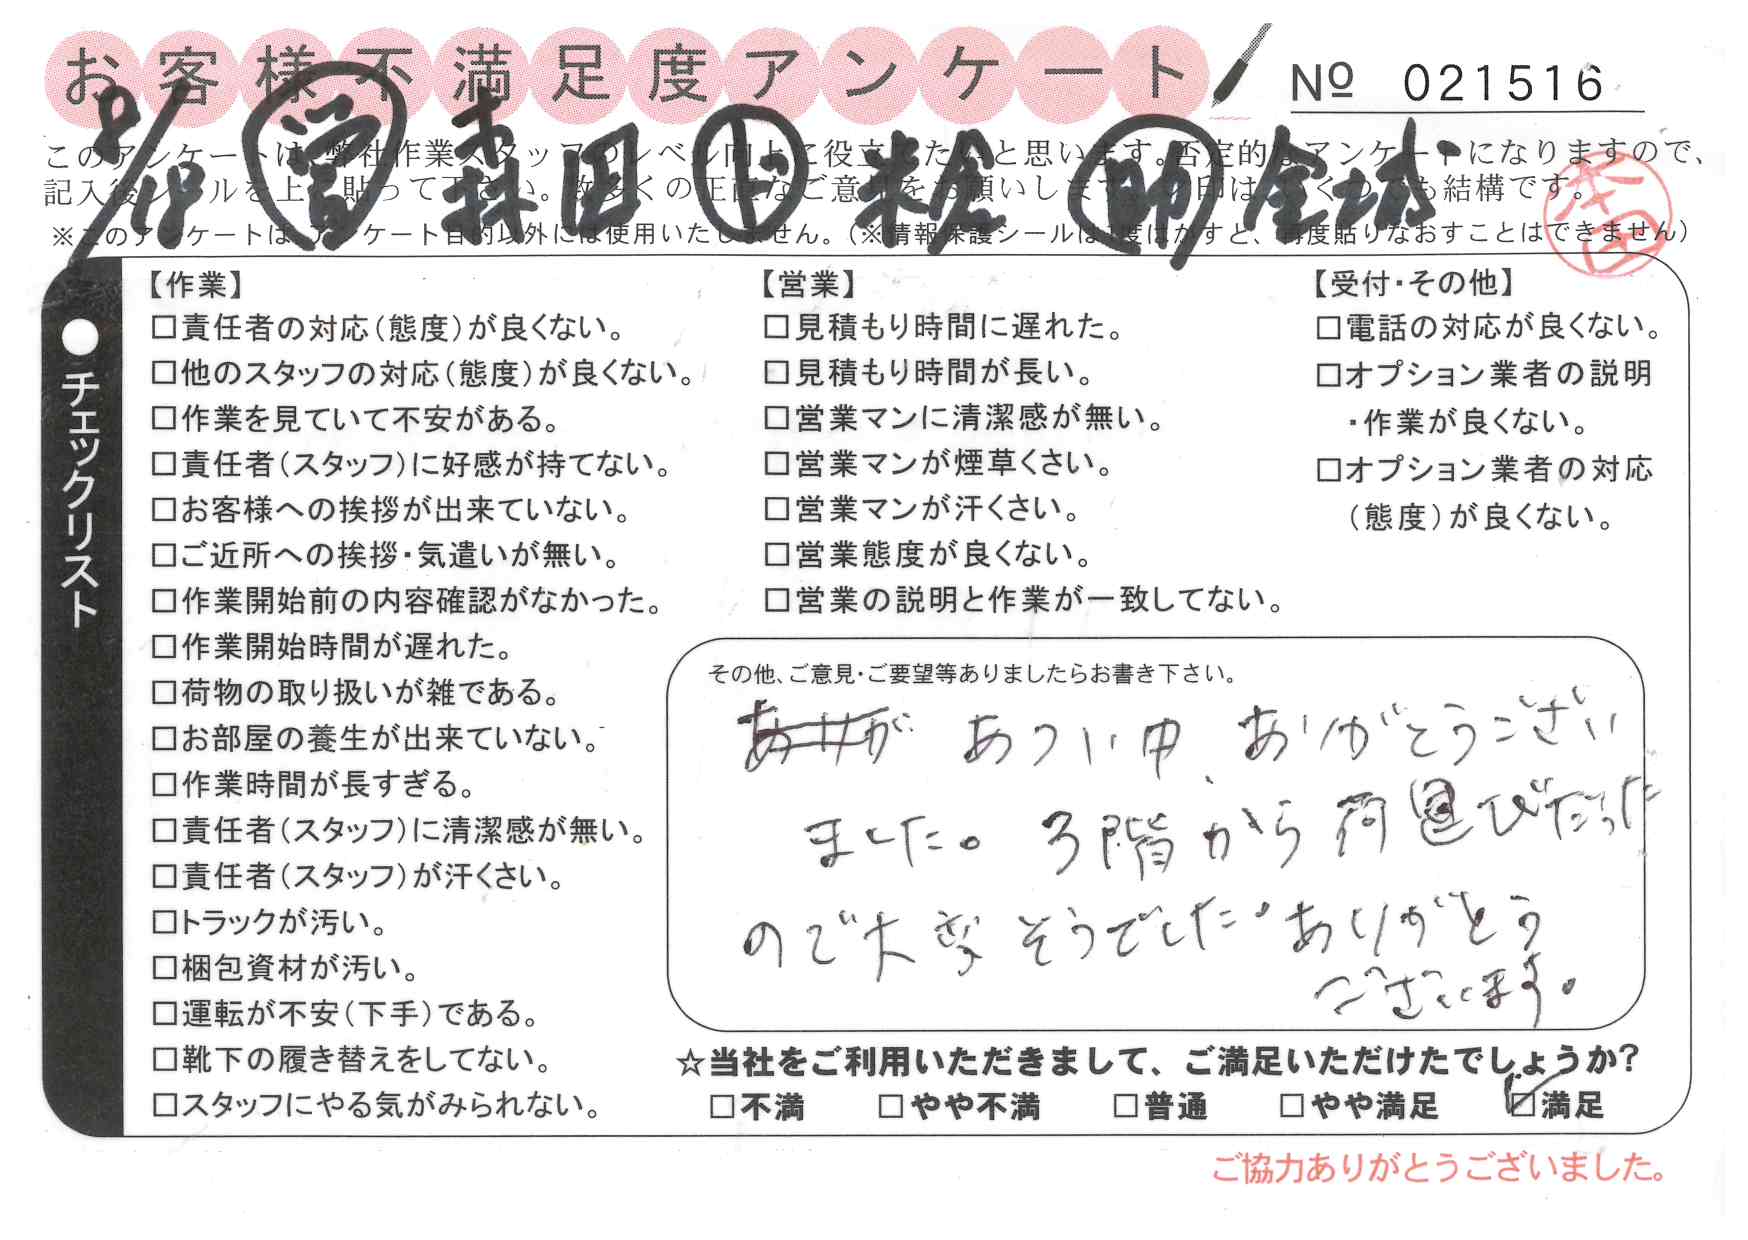 お客様不満足度アンケート
№ 021516
8/18 営 森田 ド 米倉 助 金城
このアンケートは、弊社作業スタッフのレベル向上に役立てたいと思います。否定的なアンケートになりますので、
記入後シールを上に貼って下さい。数多くの正直なご意見をお願いします。
※このアンケートは、アンケート目的以外には使用いたしません。(※情報保護シールは1度はがすと、再度貼りなおすことはできません)
本田
●チェックリスト
【作業】
□責任者の対応(態度)が良くない。
□他のスタッフの対応(態度)が良くない。
□作業を見ていて不安がある。
□責任者(スタッフ)に好感が持てない。
□お客様への挨拶が出来ていない。
□ご近所への挨拶・気遣いが無い。
□作業開始前の内容確認がなかった。
□作業開始時間が遅れた。
□荷物の取り扱いが雑である。
□お部屋の養生が出来ていない。
□作業時間が長すぎる。
□責任者(スタッフ)に清潔感が無い。
□責任者(スタッフ)が汗くさい。
□トラックが汚い。
□梱包資材が汚い。
□運転が不安(下手)である。
□靴下の履き替えをしてない。
□スタッフにやる気がみられない。
【営業】
□見積もり時間に遅れた。
□見積もり時間が長い。
□営業マンに清潔感が無い。
□営業マンが煙草くさい。
□営業マンが汗くさい。
□営業態度が良くない。
□営業の説明と作業が一致してない。
【受付・その他】
□電話の対応が良くない。
□オプション業者の説明
・作業が良くない。
□オプション業者の対応
(態度)が良くない。
その他、ご意見・ご要望等ありましたらお書き下さい。
あつい中、ありがとうござい
ました。3階から荷運びだった
ので大変そうでした。ありがとう
ございます。
☆当社をご利用いただきまして、ご満足いただけたでしょうか?
□不満 □やや不満 □普通 □やや満足 ☑満足
ご協力ありがとうございました。